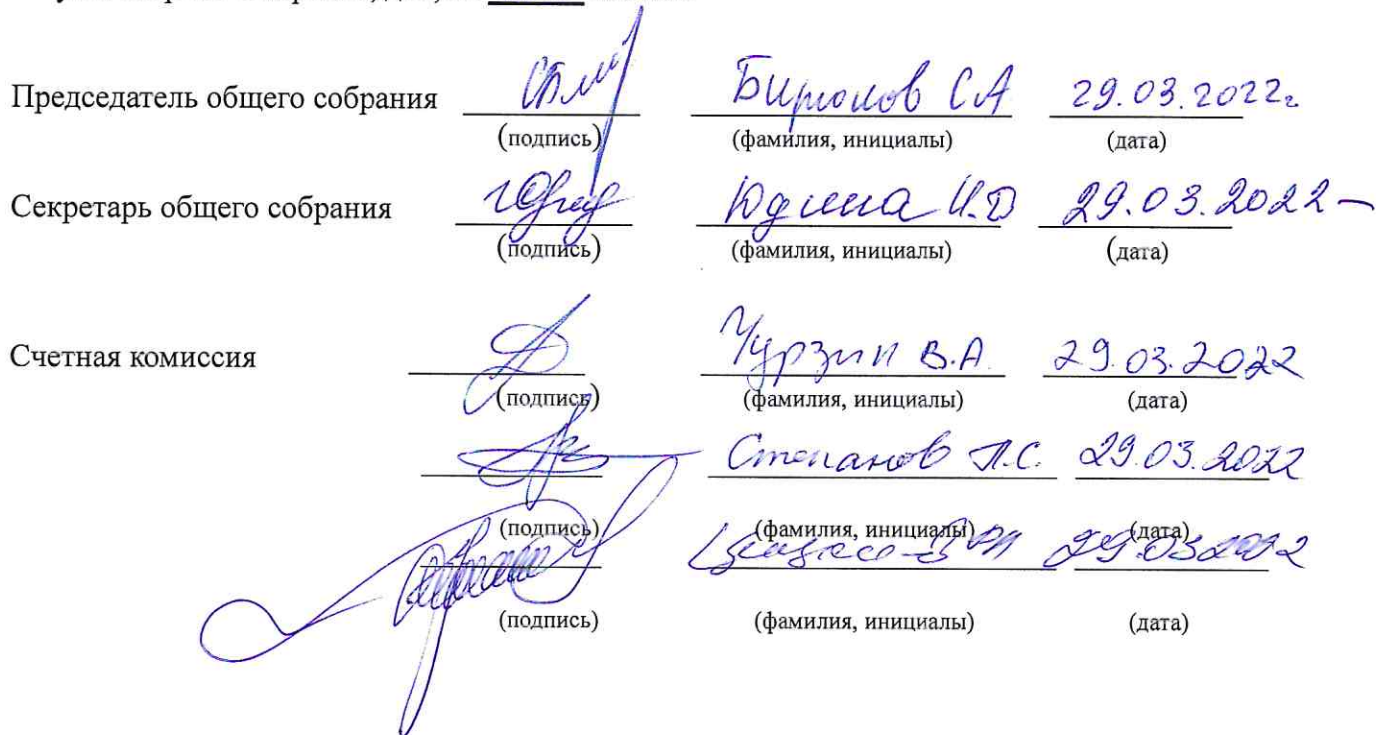 Председатель общего собрания Бирюков С.А. 29.03.2022г
(подпись) (фамилия, инициалы) (дата)
Секретарь общего собрания Юдина И.Д 29.03.2022
(подпись) (фамилия, инициалы) (дата)
Счетная комиссия Чурзин В.А. 29.03.2022
(подпись) (фамилия, инициалы) (дата)
Степанов П.С. 29.03.2022
(подпись) (фамилия, инициалы) (дата)
29.03.2022
(подпись) (фамилия, инициалы) (дата)